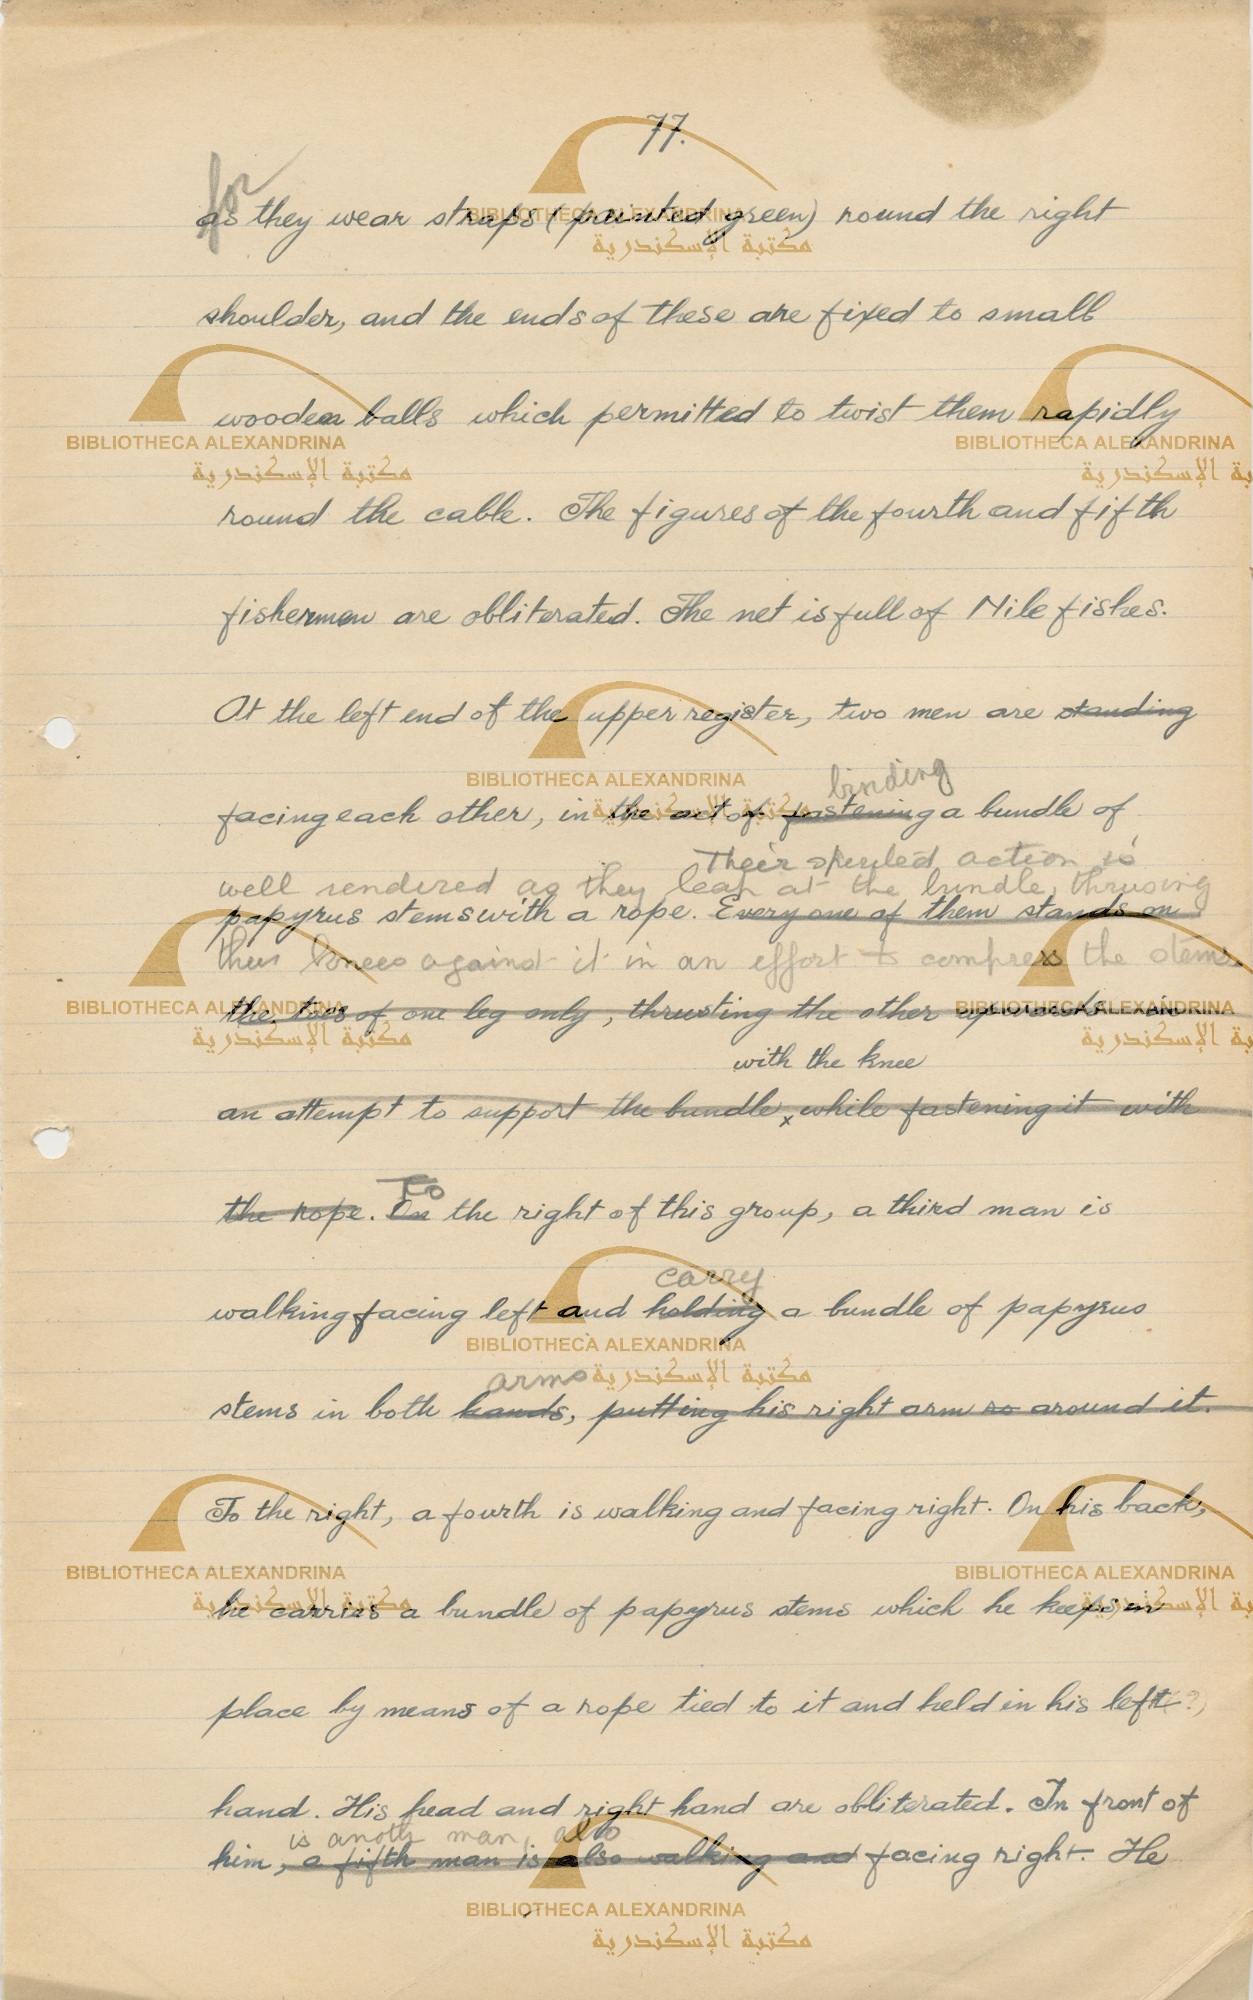 77.
for
as they wear straps (painted green) round the right
shoulder, and the ends of these are fixed to small
wooden balls which permitted to twist them rapidly
round the cable. The figures of the fourth and fifth
fishermen are obliterated. The net is full of Nile fishes.
At the left end of the upper register, two men are standing
binding
facing each other, in the act of fastening a bundle of
Their spirited action is
well rendered as they lean at the bundle, thrusing
papyrus stems with a rope. Every one of them stands on
their knees against it in an effort to compress the stems
the toes of one leg only, thrusting the other upwards in
with the knee
an attempt to support the bundle x while fastening it with
To
the rope. On the right of this group, a third man is
carry
walking facing left and holding a bundle of papyrus
arms
stems in both hands, putting his right arm ro around it.
To the right, a fourth is walking and facing right. On his back,
he carries a bundle of papyrus stems which he keeps in
place by means of a rope tied to it and held in his left (?)
hand. His head and right hand are obliterated. In front of
is anoth man, also
him, a fifth man is also walking and facing right. He
BIBLIOTHECA ALEXANDRINA
مكتبة الإسكندرية